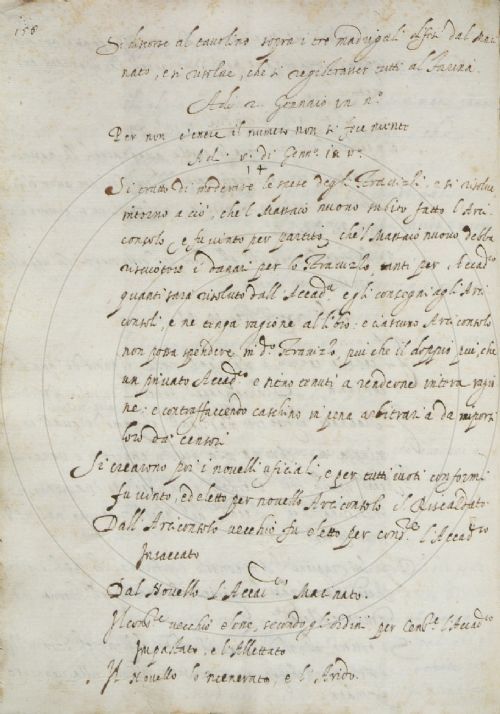 158
Si discorse al tavolino sopra i tre madrigali offerti dal Maci
nato, e si risolve, che si registrasser tutti al farina.
A dì 2. Gennaio in n.º
Per non essere il numero non si fece niente
A dì di Genn.º in n.º
14
Si trattò di moderare le spese degli Stravizzi, e si risolvé
intorno a ciò, che'l Massaio nuovo subito fatto l'Arci
consolo, e fu vinto per partito, che'l Massaio nuovo debba
riscuotere i danari per lo Stravizzo, tanti per Accad.co
quanti sarà risoluto dall'Accad.a e gli consegni agli Arci
consoli, e ne tenga ragione al libro: e ciascuno Arciconsolo
non possa spendere in d.o Stravizo, più che il doppio più, che
un privato Accad.co e sieno tenuti a renderne intera ragio
ne: e contraffacendo caschino in pena arbitraria da imporsi
loro da' censori
Si crearono poi i novelli uficiali, e per tutti i voti conformi
fu vinto, ed eletto per novello Arciconsolo il Riscaldato.
Dall'Arciconsolo vecchio fu eletto per cons.re l'Accad.co
Insaccato
Dal Novello l'Accad.co Macinato.
Il cons.re vecchio elesse, secondo gli ordini per Cens.re l'Accad.co
Impastato, e l'Allettato
Il Novello lo 'ncenerato, e l'Arido.